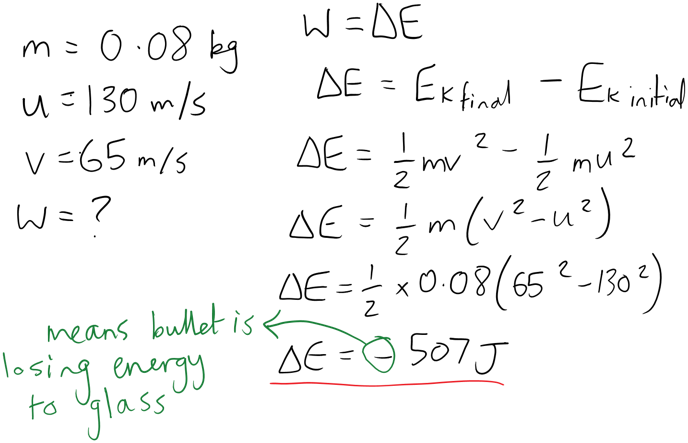 m = 0.08 kg
u = 130 m/s
v = 65 m/s
W = ?
W = ΔE
ΔE = E_K final - E_K initial
ΔE = 1/2 mv² - 1/2 mu²
ΔE = 1/2 m(v² - u²)
ΔE = 1/2 × 0.08(65² - 130²)
ΔE = - 507 J
means bullet is
losing energy
to glass